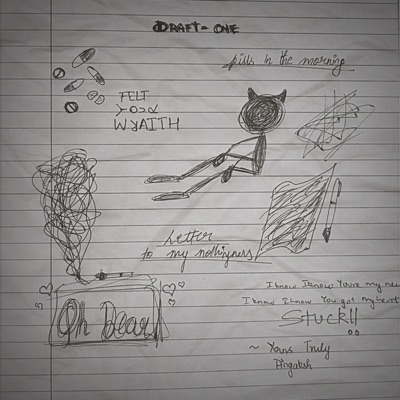 DRAFT-ONE
pills in the morning
FELT
YOUR
WRAITH
Letter
to my nothingness
Oh Dear!
I know I know You're my
I know I know You got my
STUCK!!
~ Yours Truly